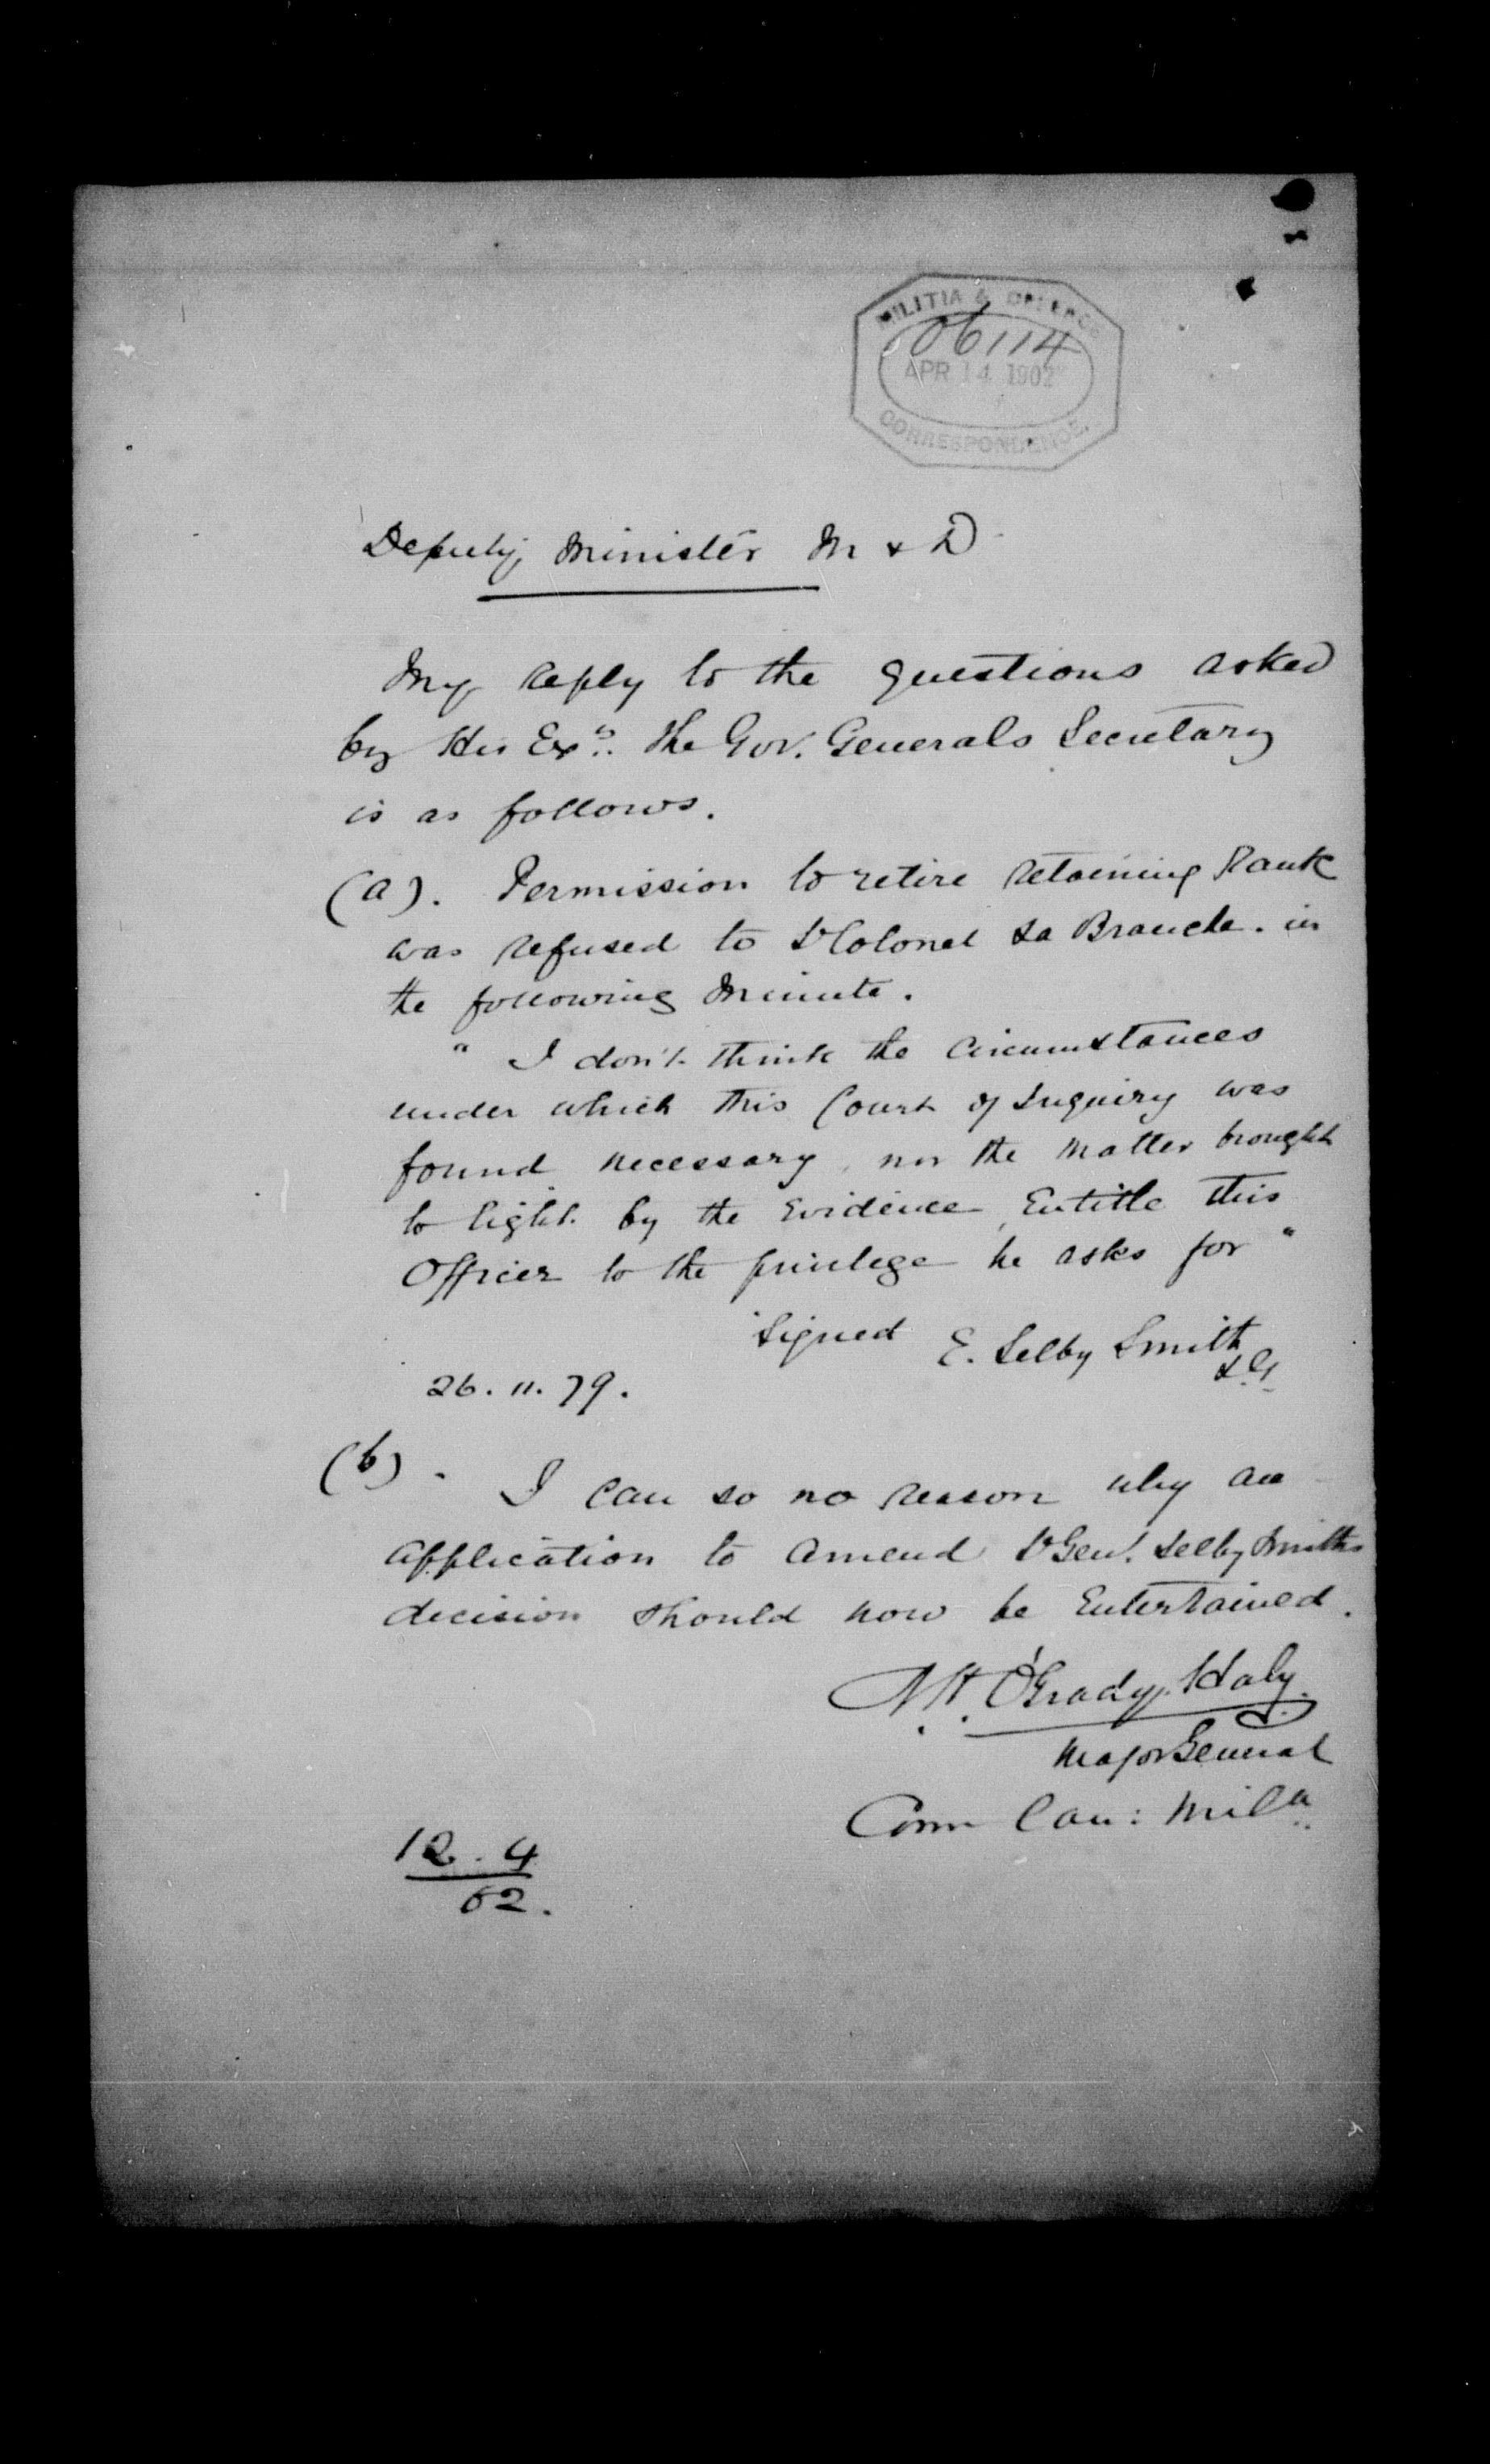 MILITIA & DEFENCE
06114
APR 14 1902
CORRESPONDENCE.
Deputy Minister M & D
My reply to the questions asked
by His Excy. the Gov. Generals Secretary
is as follows.
(a). Permission to retire retaining Rank
was refused to Lt Colonel La Branche. in
the following Minute.
" I don't think the circumstances
under which this Court of Inquiry was
found necessary, nor the matter brought
to light by the Evidence, Entitle this
Officer to the privilege he asks for "
Signed E. Selby Smith
LG.
26.11.79.
(b). I can so no reason why an
application to amend Lt Genl. Selby Smiths
decision should now be Entertained.
O'Grady Haly.
Major General
Com Can: Mila
12.4
02.